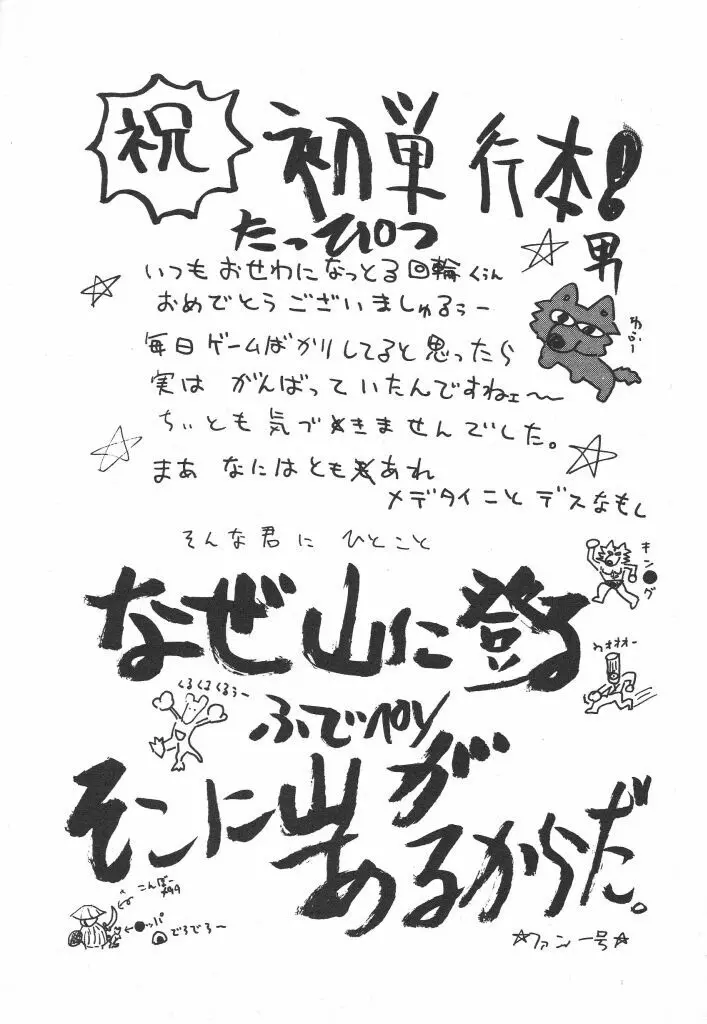 祝 初単行本!
たっぴつ
男
いつもおせわになっとる回輪くぅん
おめでとうございましゅるぅー
わふー
毎日ゲームばかりしてると思ったら
実は がんばっていたんですねェ〜
ちぃとも気づきませんでした。
まあ なにはともあれ
メデタイことデスなもし
そんな君に ひとこと
キン●グ
なぜ山に登る
ウオオオー
くるくるくるぅー
ふでペん
そこに山が
あるからだ。
こんぼー
←●ッパ
でろでろ〜
☆ファン一号☆